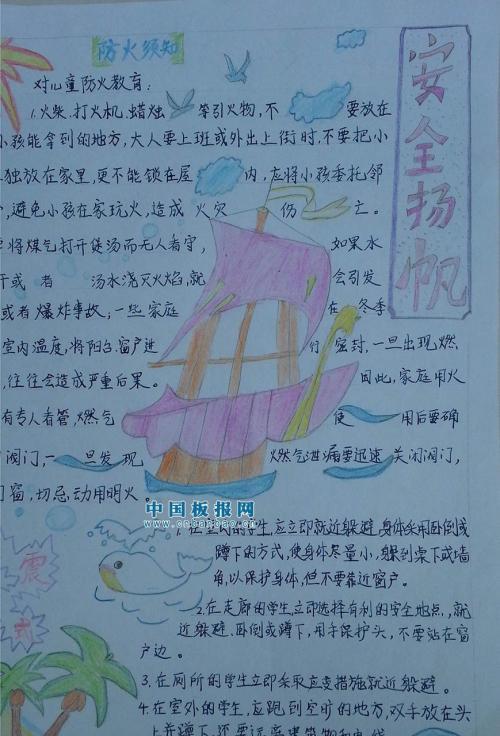 防火须知
安全扬帆
对儿童防火教育：
1.火柴.打火机、蜡烛等引火物，不要放在
小孩能拿到的地方，大人要上班或外出上街时，不要把小
独放在家里，更不能锁在屋内，应将小孩委托邻
，避免小孩在家玩火，造成火灾伤亡。
将煤气打开煲汤而无人看守，如果水
干或者汤水浇灭火焰，就会引发
或者爆炸事故；一些家庭在冬季
室内温度，将阳台、窗户进行密封，一旦出现燃
，往往会造成严重后果。因此，家庭用火
有专人看管，燃气使用后要确
阀门，一旦发现燃气泄漏要迅速关闭阀门，
门窗，切忌动用明火。
中国板报网
www.cnbanbao.cn
1.在室内的学生，应立即就近躲避，身体采用卧倒或
蹲下的方式，使身体尽量小，躲到桌下或墙
角，以保护身体，但不要靠近窗户。
2.在走廊的学生立即选择有利的安全地点，就
近躲避、卧倒或蹲下，用手保护头，不要站在窗
户边。
3.在厕所的学生立即采取应变措施就近躲避。
4.在室外的学生，应跑到空旷的地方，双手放在头
上，并蹲下，还要远离建筑物和电线
震
式